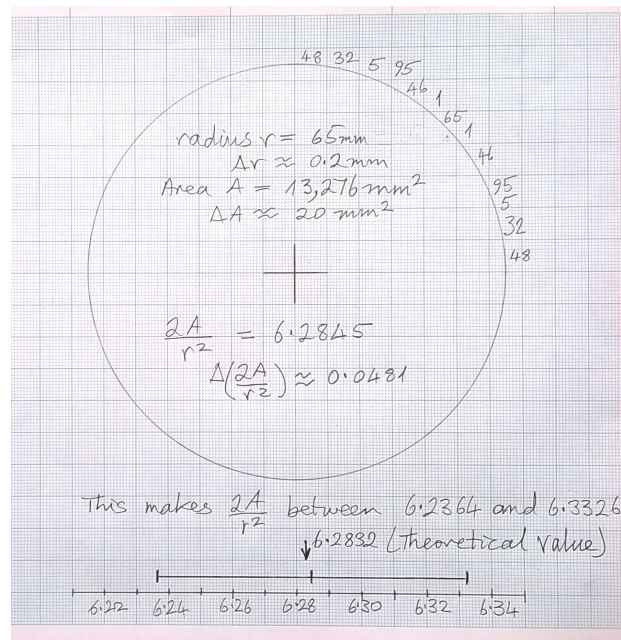 48 32 5 95
46 1
65 1
46
95
5
32
48
radius r = 65mm
Δr ≈ 0.2mm
Area A = 13,276 mm²
ΔA ≈ 20 mm²
2A/r² = 6.2845
Δ(2A/r²) ≈ 0.0481
This makes 2A/r² between 6.2364 and 6.3326
6.2832 (theoretical value)
6.22 6.24 6.26 6.28 6.30 6.32 6.34